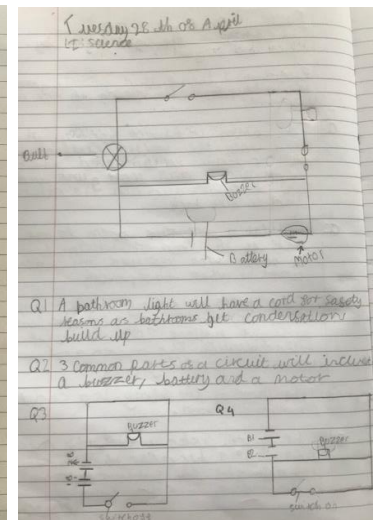 Tuesday 28th of April
LI: Science
Bulb
Buzzer
Battery
Motor
Q1 A bathroom light will have a cord for safety
reasons as bathrooms get condensation
build up
Q2 3 common parts of a circuit will include
a buzzer, battery and a motor
Q3
Q4
Buzzer
Buzzer
switch on